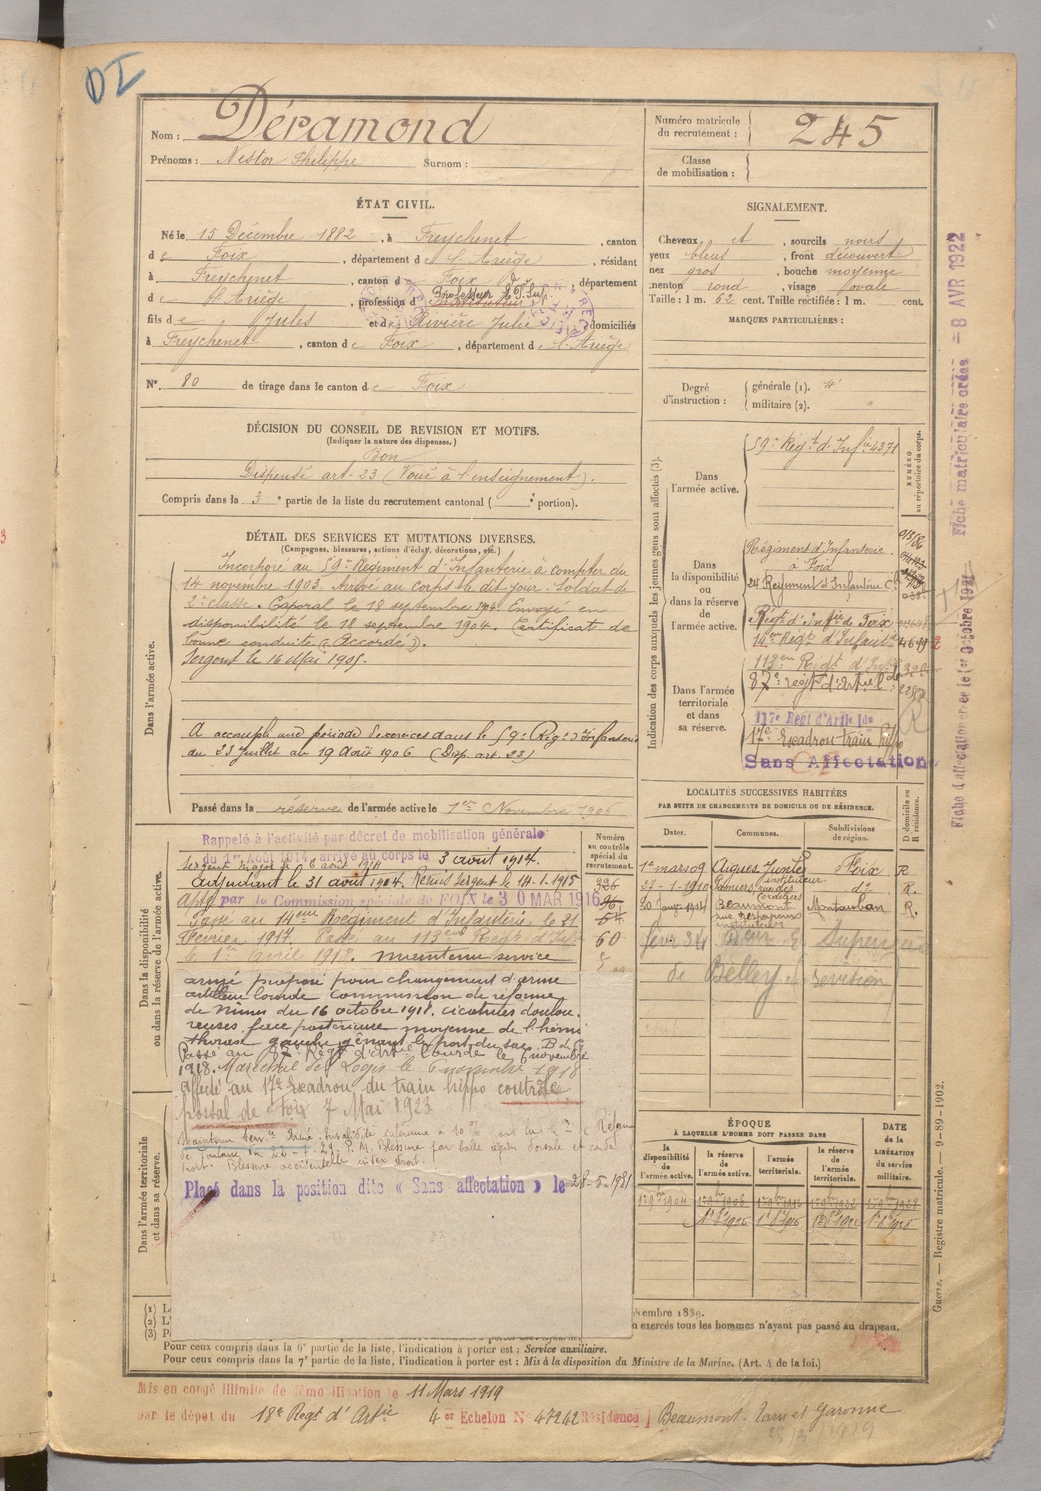 DI
Nom : Déramond
Prénoms : Nestor Philippe Surnom :
Numéro matricule du recrutement : 245
Classe de mobilisation :
ÉTAT CIVIL.
Né le 15 Décembre 1882, à Freychenet, canton
de Foix, département de l'Ariège, résidant
à Freychenet, canton de Foix, département
de l'Ariège, profession d Professeur E.P.Sup.
fils de Jules et de Rivière Julie domiciliés
à Freychenet, canton de Foix, département de l'Ariège
N° 80 de tirage dans le canton de Foix
SIGNALEMENT.
Cheveux et, sourcils noirs
yeux bleus, front découvert
nez gros, bouche moyenne
menton rond, visage ovale
Taille : 1 m. 62 cent. Taille rectifiée : 1 m. cent.
MARQUES PARTICULIÈRES :
Degré d'instruction : générale (1). 4
militaire (2).
DÉCISION DU CONSEIL DE REVISION ET MOTIFS.
(Indiquer la nature des dispenses.)
Bon
Dispensé art. 23 (Voué à l'enseignement).
Compris dans la 3e partie de la liste du recrutement cantonal ( portion).
DÉTAIL DES SERVICES ET MUTATIONS DIVERSES.
(Campagnes, blessures, actions d'éclat, décorations, etc.)
Dans l'armée active.
Incorporé au 59e Régiment d'Infanterie à compter du
14 novembre 1903. Arrivé au corps le dit jour. Soldat de
2e classe. Caporal le 18 septembre 1904. Envoyé en
disponibilité le 18 septembre 1904. Certificat de
bonne conduite "Accordé".
Sergent le 16 Mai 1905.
A accompli une période d'exercices dans le 59e Régt d'Infanterie
du 23 juillet au 19 Août 1906 (Disp. art. 23)
Passé dans la réserve de l'armée active le 1er Novembre 1906
Indication des corps auxquels les jeunes gens sont affectés (3).
NUMÉRO au répertoire du corps.
Dans l'armée active.
59e Régt d'Infie 4371
Dans la disponibilité ou dans la réserve de l'armée active.
Régiment d'Infanterie
à Foix
Régt d'Infie de Foix
14e Régt d'Infanterie
113e Régt d'Infie
Dans l'armée territoriale et dans sa réserve.
87e régt d'Artel lde
117e Regt d'Artie lde
17e Escadron train hippo
Sans Affectation
Fiche d'affectation créée le 1er Octobre 1921
Fiche matriculaire créée = 8 AVR 1922
Dans la disponibilité ou dans la réserve de l'armée active.
Numéro au contrôle spécial du recrutement.
Rappelé à l'activité par décret de mobilisation générale
du 1er Août 1914, arrivé au corps le 3 août 1914.
Sergent Major le 6 août 1914
Adjudant le 31 août 1914. Remis Sergent le 14.1.1915
par la Commission spéciale de FOIX le 30 MAR 1916
Passé au 14eme Régiment d'Infanterie le 21
Février 1917. Passé au 113eme Régt d'Infie
le 1er avril 1918. maintenu service
armé proposé pour changement d'arme
artillerie lourde Commission de réforme
de Nimes du 16 octobre 1918. cicatrices doulou-
reuses face postérieure moyenne de l'hémi
thorax gauche gênant le port du sac. B de G
Passé au 87e Régt d'Artie Lourde le 6 novembre
1918. Maréchal des Logis le 6 novembre 1918
Affecté au 17e Escadron du train hippo contrôle
postal de Foix 7 Mai 1923
Maintenu Servce Armé. Invalidité inférieure à 10 %
Blessure accidentelle index droit.
Placé dans la position dite « Sans affectation » le 28-5-1931
Dans l'armée territoriale et dans sa réserve.
LOCALITÉS SUCCESSIVES HABITÉES
PAR SUITE DE CHANGEMENTS DE DOMICILE OU DE RÉSIDENCE.
Dates. Communes. Subdivisions de région. D domicile ou R résidence.
1er mars 09 Aigues Juntes instituteur Foix R
27-1-1910 Pamiers, rue des Cordeliers do R.
Beaumont Montauban R.
instituteur
de Belley
ÉPOQUE
À LAQUELLE L'HOMME DOIT PASSER DANS
la disponibilité de l'armée active. la réserve de l'armée active. l'armée territoriale. la réserve de l'armée territoriale.
DATE de la LIBÉRATION du service militaire.
(1)
(2)
(3)
n exercés tous les hommes n'ayant pas passé au drapeau.
Pour ceux compris dans la 6e partie de la liste, l'indication à porter est : Service auxiliaire.
Pour ceux compris dans la 7e partie de la liste, l'indication à porter est : Mis à la disposition du Ministre de la Marine. (Art. 4 de la loi.)
Guerre. — Registre matricule. — 9-89-1902.
Mis en congé illimité de démobilisation le 11 Mars 1919
par le dépôt du 18e Régt d'Artie 4er Echelon N° 47242 Résidence Beaumont. Tarn et Garonne